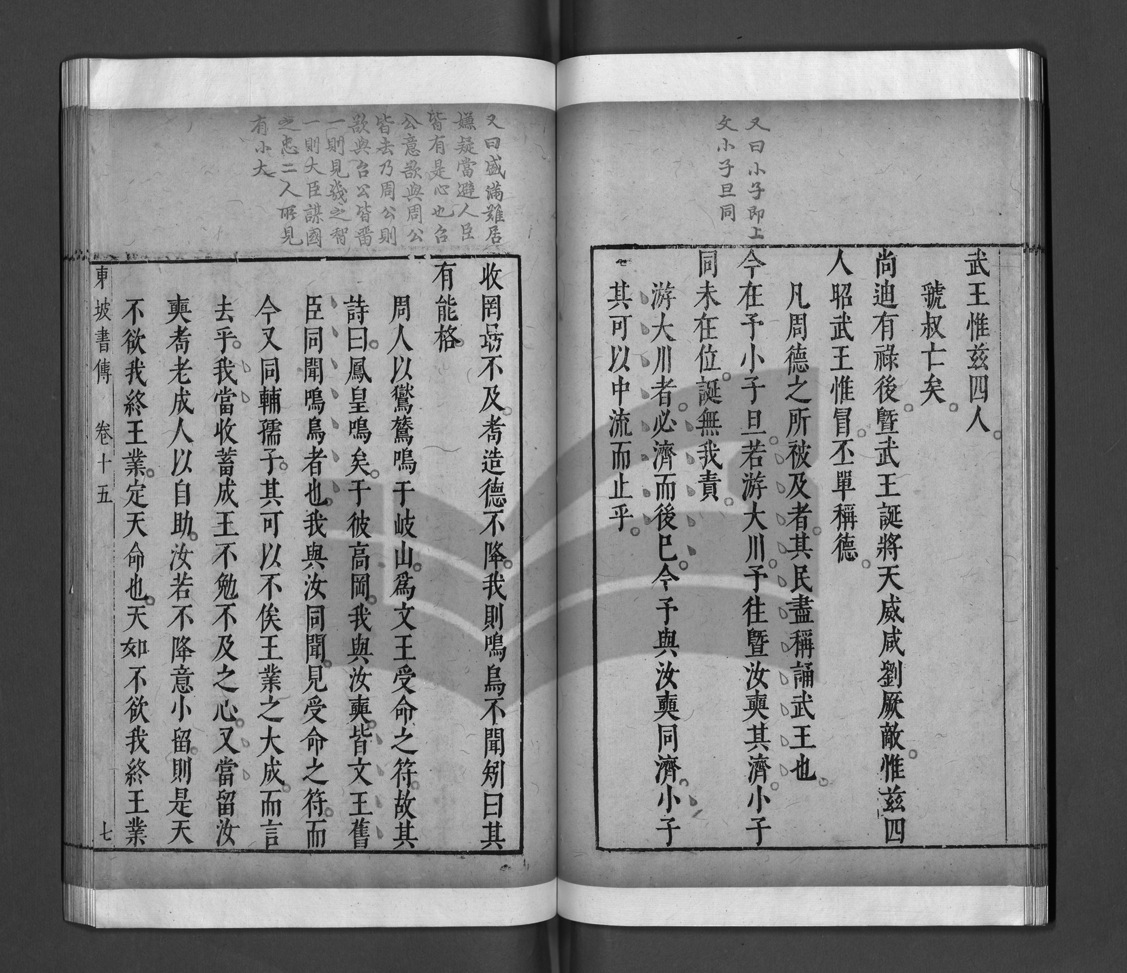 又曰小子即上
文小子旦同
武王惟兹四人。
虢叔亡矣。
尚迪有祿後。暨武王誕將天威咸劉厥敵。惟兹四
人昭武王惟冒。丕單稱德。
凡周德之所被及者。其民盡稱誦武王也。
今在予小子旦。若游大川。予往暨汝奭其濟。小子
同未在位。誕無我責。
游大川者。必濟而後已。今予與汝奭同濟。小子
其可以中流而止乎。
又曰盛滿難居
嫌疑當避人臣
皆有是心也召
公意欲與周公
皆去乃周公則
欲與召公皆留
一則見幾之智
一則大臣謀國
之忠二人所見
有小大
收罔勗不及。耇造德不降。我則鳴鳥不聞矧曰其
有能格。
周人以鸑鷟鳴于岐山。爲文王受命之符。故其
詩曰。鳳皇鳴矣。于彼高岡。我與汝奭。皆文王舊
臣同聞鳴鳥者也。我與汝同聞。見受命之符。而
今又同輔孺子。其可以不俟王業之大成。而言
去乎。我當收蓄成王不勉不及之心。又當留汝
奭耇老成人以自助。汝若不降意小留。則是天
不欲我終王業。定天命也。天如不欲我終王業
東坡書傳 卷十五 七